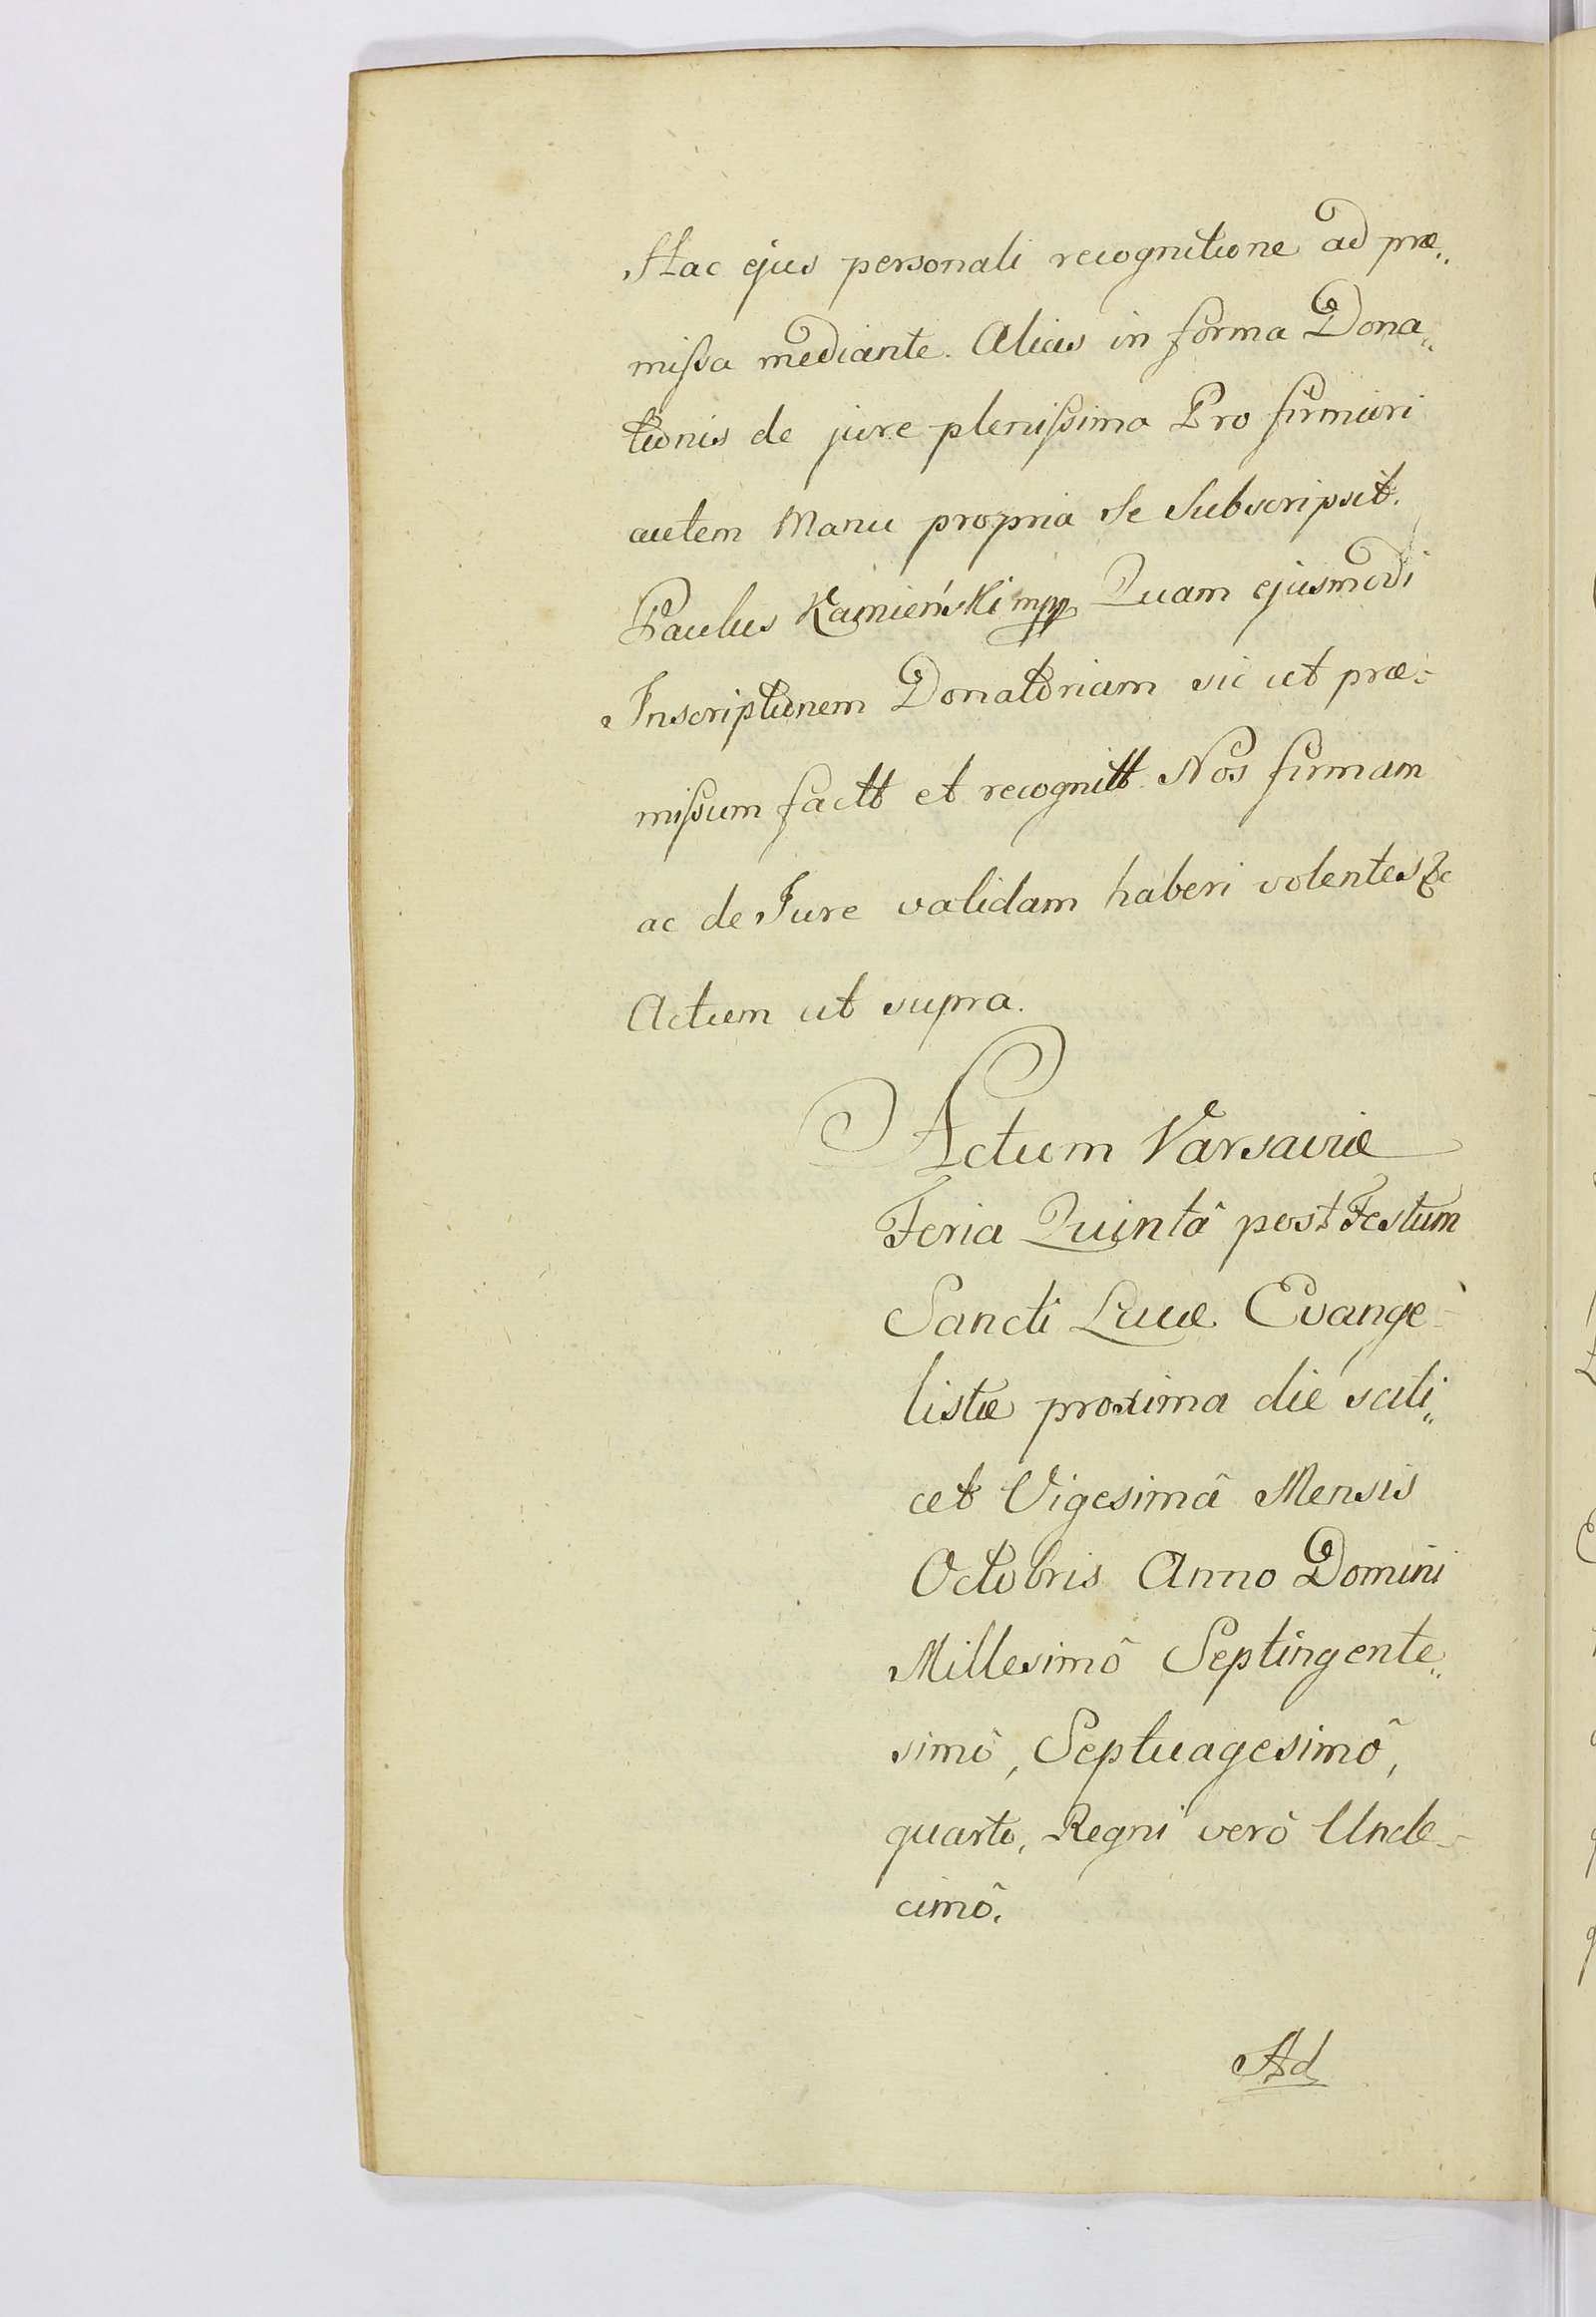 Hac ejus personali recognitione ad præ„
missa mediante. Alias in forma Dona„
tionis de jure plenissima Pro firmiori
autem Manu propria Se Subscripsit.
Paulus Kamieński mpp Quam ejusmodi
Inscriptionem Donatoriam sic ut præ-
missum factt et recognitt. Nos firmam
ac de Jure validam haberi volentes &c
Actum ut supra.
Actum Varsaviæ
Feria Quintâ post Festum
Sancti Lucæ Evange-
listæ proxima die scili„
cet Vigesimâ Mensis
Octobris Anno Domini
Millesimô Septingente„
simô, Septuagesimô,
quarto, Regni verò Unde-
cimô.
Ad